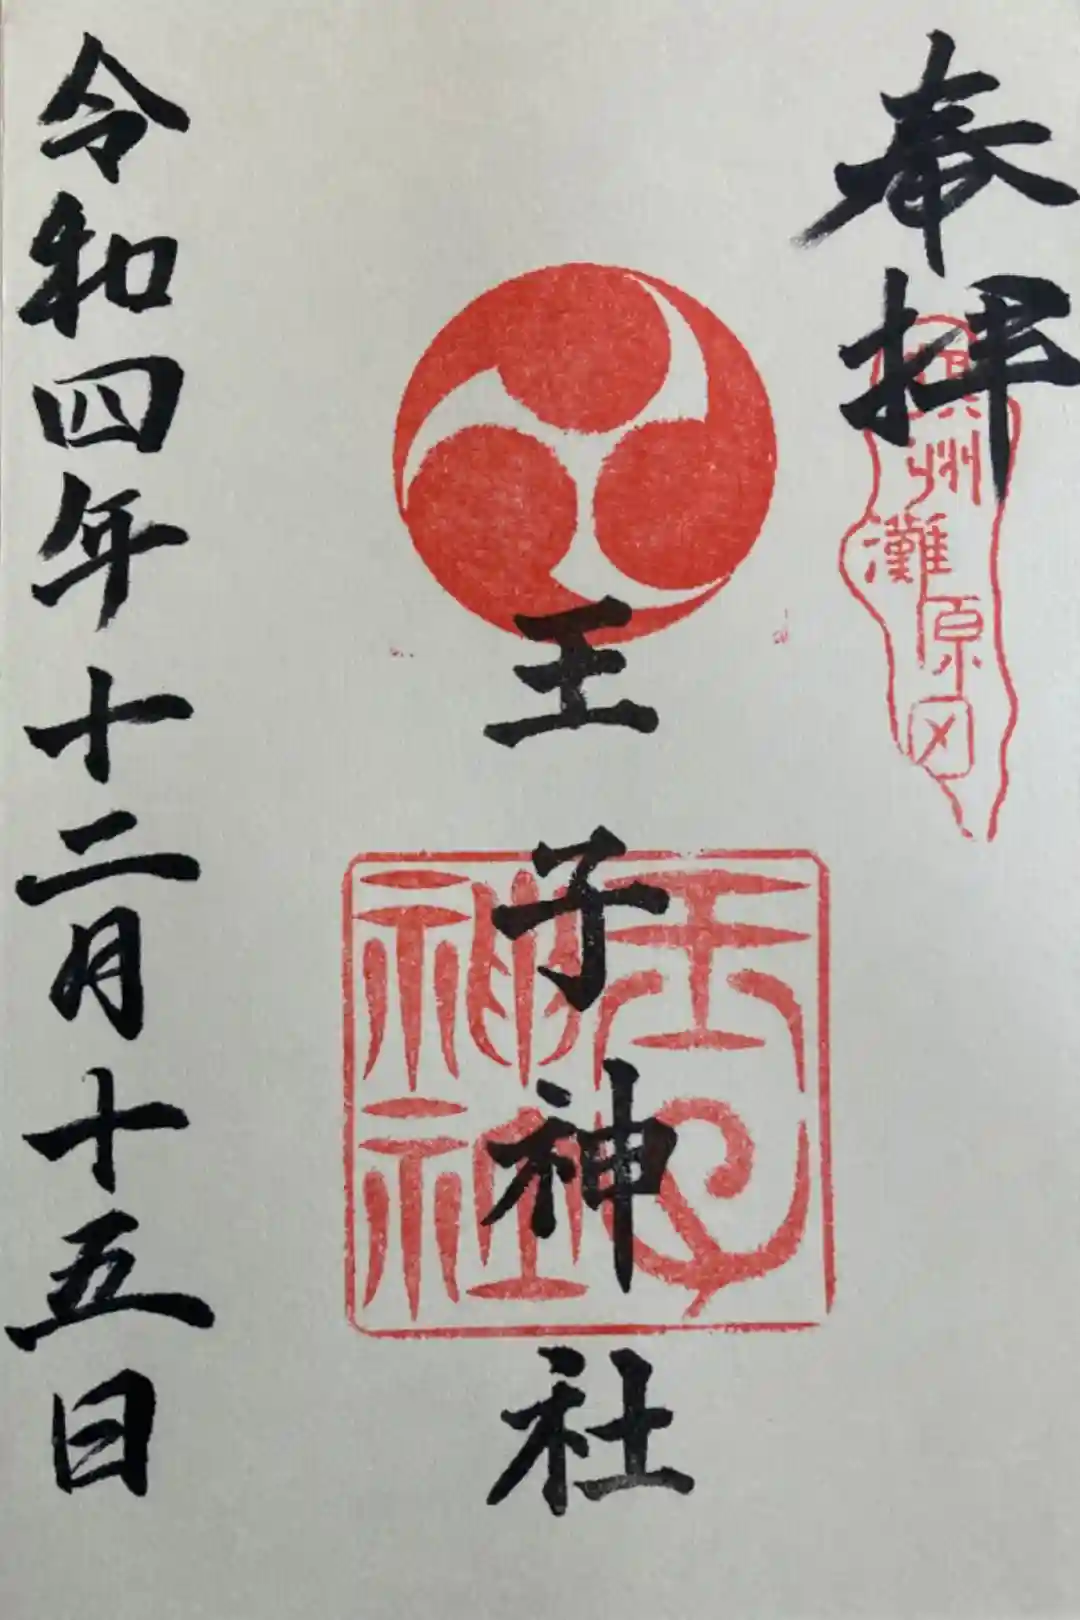 奉拝
州灘原
王子神社
王子
神社
令和四年十二月十五日